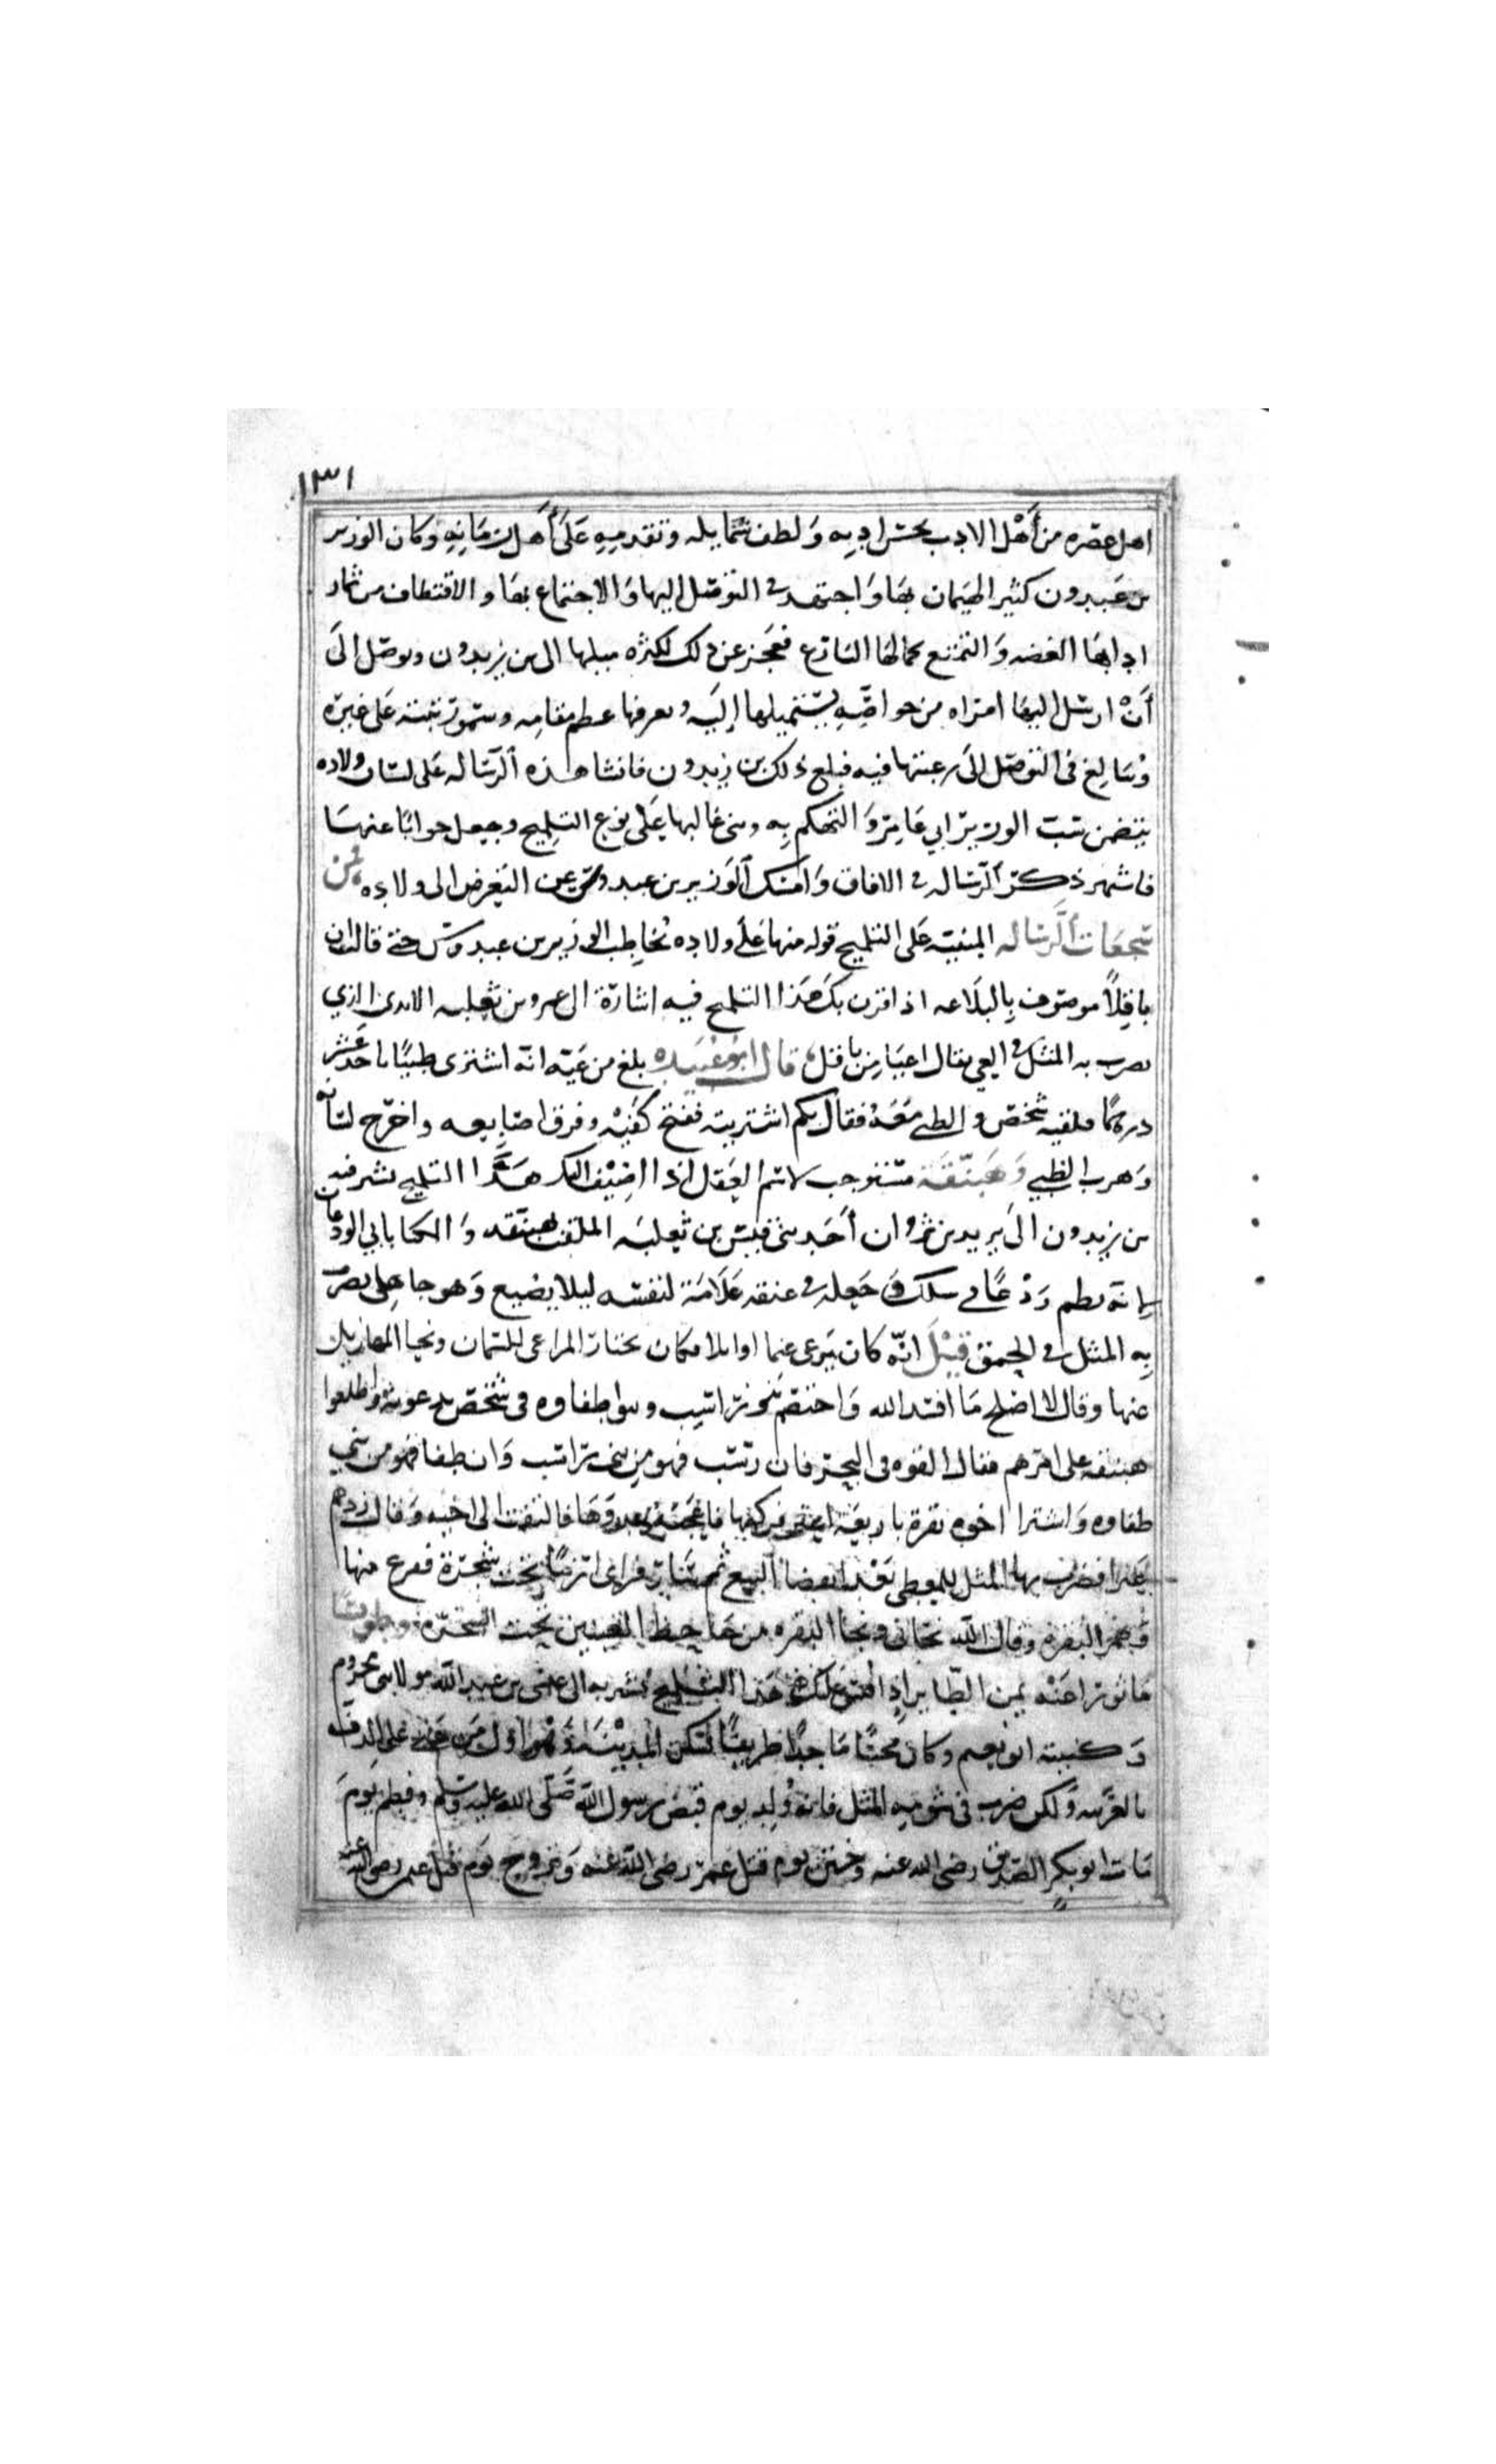 ١٣١
اهل عصره من أهل الادب بحسن ادبه ولطف شمايله وتقدمه على أهل زمانه وكان الوزير
بن عبدون كثير الهيمان بها واجتهد في التوصل اليها والاجتماع بها والاقتطاف من ثمار
ادابها الغضه والتمتع بجمالها البارع فعجز عن ذلك لكثره ميلها الى بن زيدون وتوصل الى
أن ارسل اليها امراه من خواصه يستميلها إليه ويعرفها عظم مقامه وسمو رتبته على غيره
وتبالغ في التوصل الى رغبتها فيه فبلغ ذلك بن زيدون فانشا هذه الرساله على لسان ولاده
يتضمن سب الوزير ابي عامر والتهكم به وبنى غالبها على نوع التلميح وجعل جوابًا عنها
فاشهر ذكر الرساله في الافاق وامسك الوزير بن عبدوس عن التعرض الى ولاده فمن
سجعات الرساله المبنيه على التلميح قوله منها على ولاده تخاطب الوزير بن عبدوس حتى قالت ان
باقلًا موصوف بالبلاغه اذا قرن بك هذا التلميح فيه اشارة الى عمرو بن ثعلبه الايادي الذي
يضرب به المثل في العي يقال اعيا من باقل قال ابو عبيده بلغ من عيه انه اشترى ظبيًا باحد عشر
درهمًا فلقيه شخص والظبي معه فقال بكم اشتريته ففتح كفيه وفرق اصابعه واخرج لسانه
وهرب الظبي وهبنقة مستوجب لاسم العقل اذا اضيف اليك هذا التلميح يشير فيه
بن زيدون الى يزيد بن ثروان أحد بني قيس بن ثعلبه الملقب هبنقه والمكنا بابي الودعات
لانه نظم ودعًا في سلك وجعله في عنقه علامة لنفسه ليلا يضيع وهو جاهلي يضرب
به المثل في الحمق قيل انه كان يرعى غنما اوابلا فكان يختار المراعي للسمان وينحي المهازيل
عنها وقال لا اصلح ما افسد الله واختصم بنو راسب وبنوا طفاوه في شخص يدعونه واطلعوا
هبنقه على امرهم فقال القوه في البحر فان رسب فهو من بني راسب وان طفا فهو من بني
طفاوه واشترا اخوه بقرة باربعة اعنز فركبها فاعجبه عدوها فالتفت الى اخيه وقال زدهم
عنزا فضرب بها المثل للمعطي بعد انقضا البيع ثم سار فراى ارنبًا تحت شجرة ففزع منها
وهمز البقره وقال الله نجاني ونجا البقره من جاحظ العينين تحت الشجره وطويسًا
ماثور عنه يمن الطاير اذا قيس عليك هذا التلميح يشير به الى عيسى بن عبد الله مولا بني مخزوم
وكنيته ابو نعيم وكان مخنثا ماجنًا ظريفًا يسكن المدينة وهو اول من غنى على الدف
بالعربيه ولكن ضرب في شومه المثل فانه ولد يوم قبض رسول الله صلى الله عليه وسلم وفطم يوم
مات ابو بكر الصديق رضي الله عنه وختن يوم قتل عمر رضي الله عنه وتزوج يوم قتل عمر رضي الله عنه